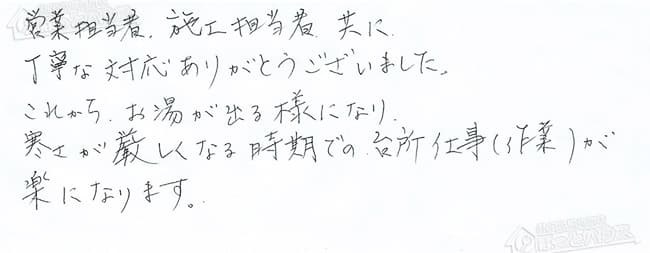 営業担当者、施工担当者 共に
丁寧な対応ありがとうございました。
これから、お湯が出る様になり、
寒さが厳しくなる時期での台所仕事(作業)が
楽になります。